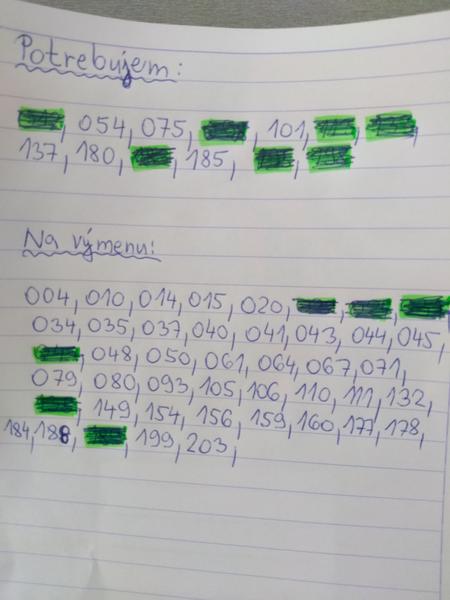 Potrebujem:
054, 075, , 101, ,
137, 180, , 185, ,
Na výmenu:
004, 010, 014, 015, 020, , ,
034, 035, 037, 040, 041, 043, 044, 045,
, 048, 050, 061, 064, 067, 071,
079, 080, 093, 105, 106, 110, 111, 132,
, 149, 154, 156, 159, 160, 177, 178,
184, 188, , 199, 203,